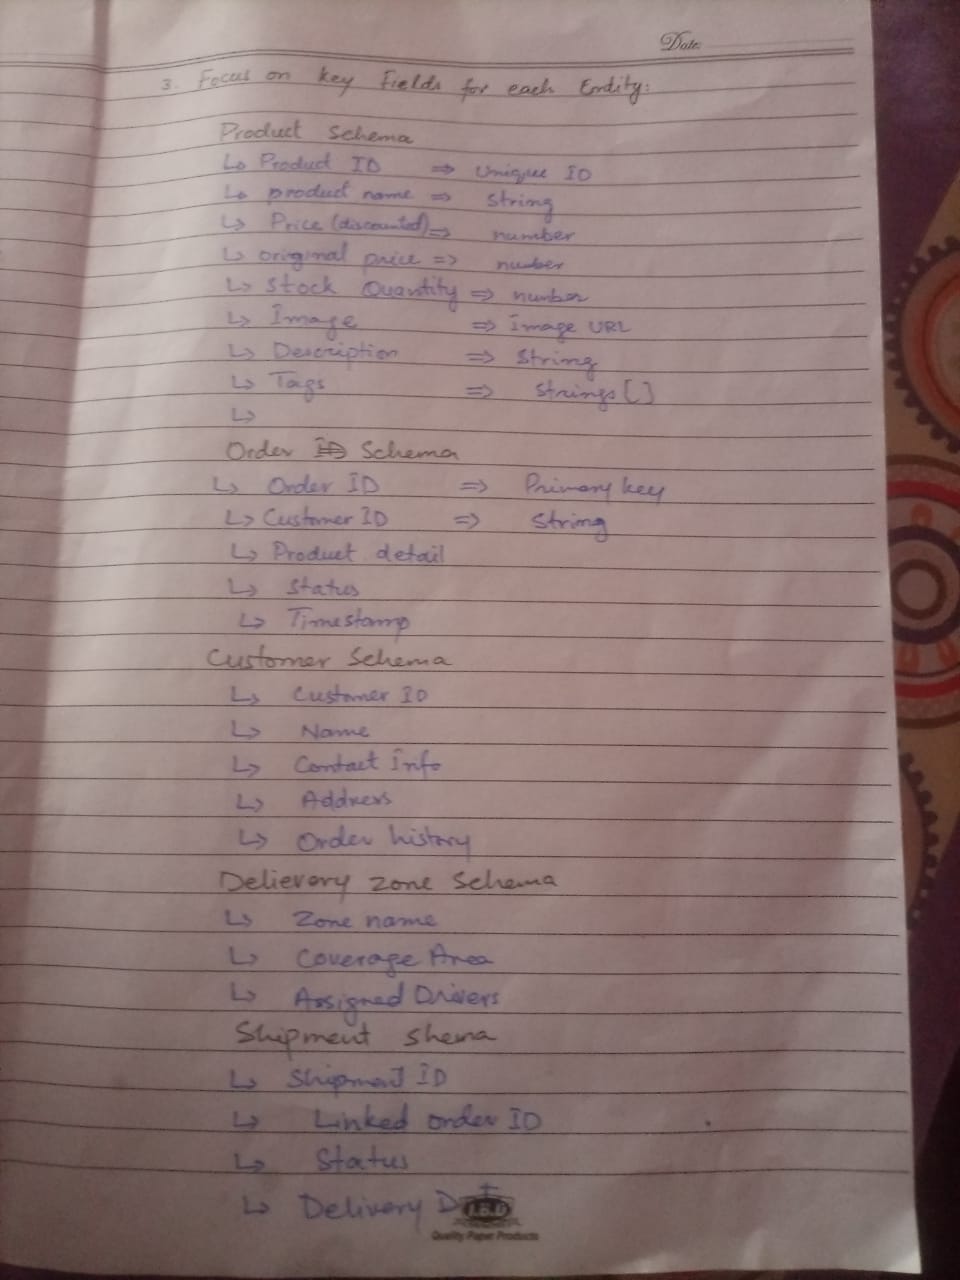 Date:
3. Focus on key Fields for each Entity:
Product Schema
↳ Product ID ⇒ Unique ID
↳ product name ⇒ string
↳ Price (discounted) ⇒ number
↳ original price ⇒ number
↳ Stock Quantity ⇒ number
↳ Image ⇒ Image URL
↳ Description ⇒ String
↳ Tags ⇒ Strings []
↳
Order ID Schema
↳ Order ID ⇒ Primary key
↳ Customer ID ⇒ String
↳ Product detail
↳ Status
↳ Timestamp
Customer Schema
↳ Customer ID
↳ Name
↳ Contact Info
↳ Address
↳ Order history
Delievery zone Schema
↳ Zone name
↳ Coverage Area
↳ Assigned Drivers
Shipment Shema
↳ Shipment ID
↳ Linked order ID
↳ Status
↳ Delivery
Quality Paper Products